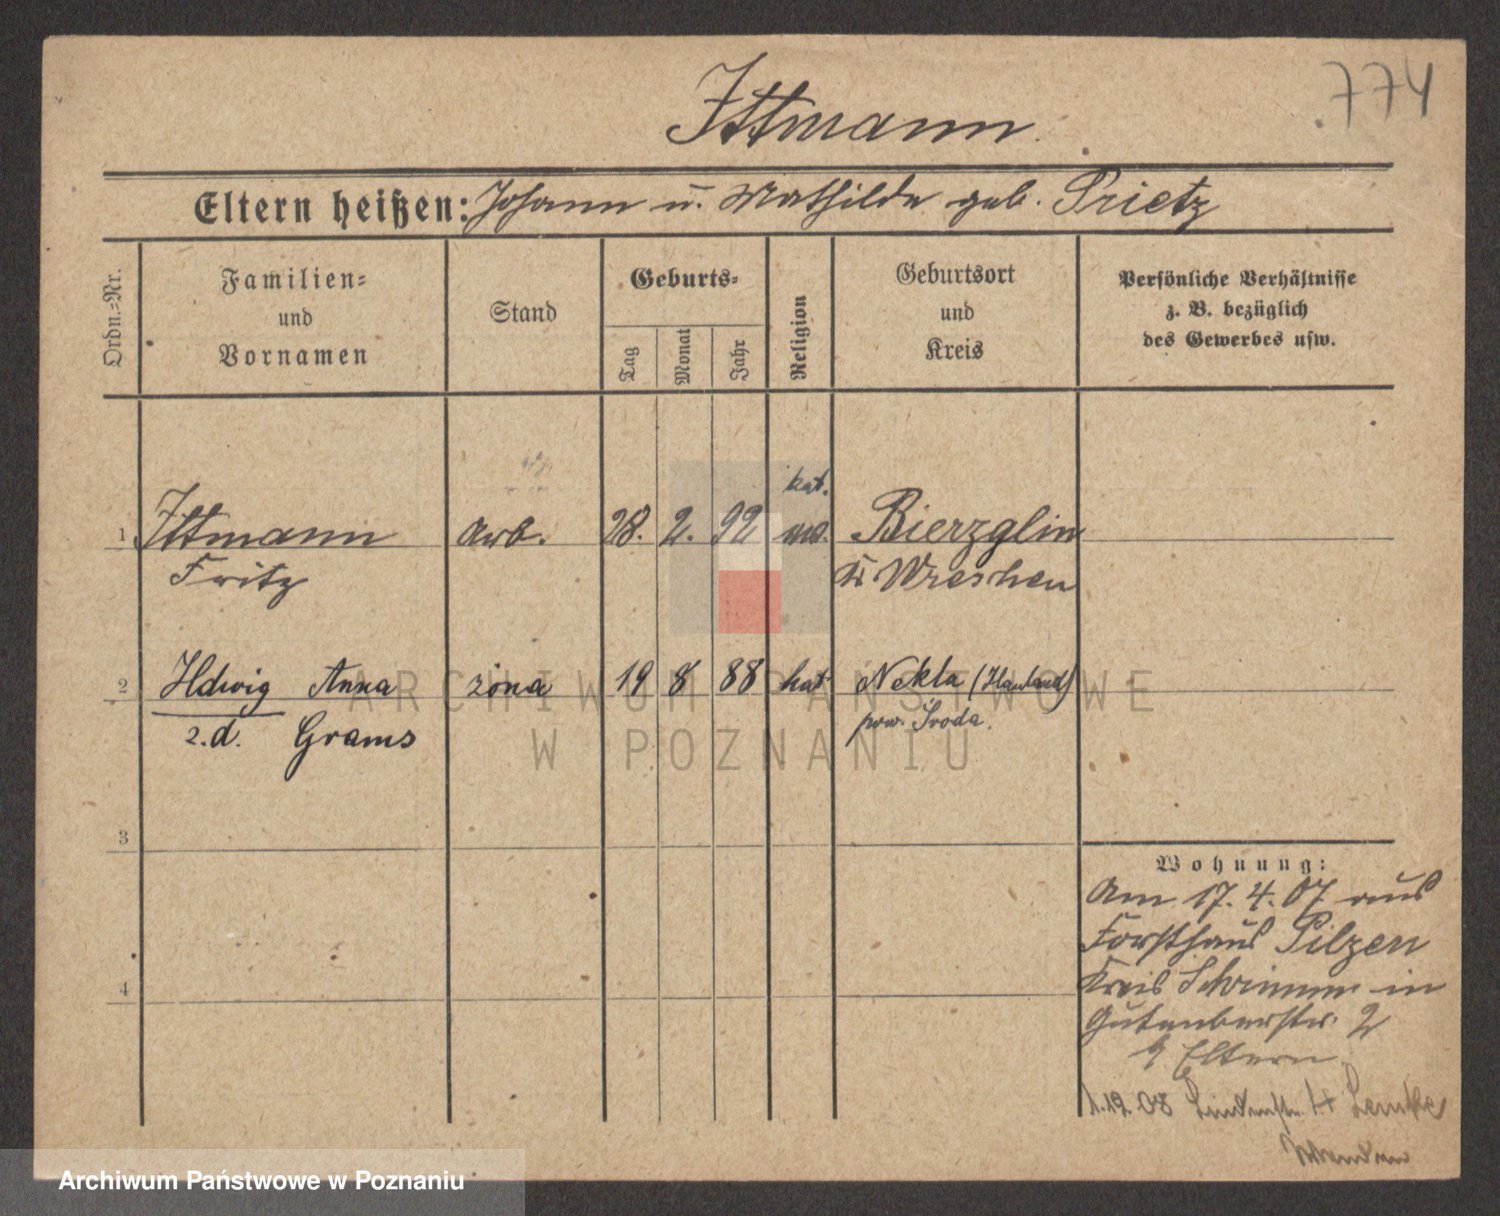 774
Ittmann
Eltern heißen: Johann u. Mathilde geb. Prietz
Ordn.=Nr.
Familien=
und
Vornamen
Stand
Geburts=
Tag
Monat
Jahr
Religion
Geburtsort
und
Kreis
Persönliche Verhältnisse
z. B. bezüglich
des Gewerbes usw.
kat.
1 Ittmann Arb. 28. 2. 92 Bierzglin
Fritz Kr Wreshen
2 Hdwig Anna żona 19 8 88 kat Nekla (Hauland)
z.d. Grams pow. Środa.
3
4
Wohnung:
Am 17. 4. 07 aus
Forsthaus Pilzen
Kreis Schrimm in
Gutenberstr. 2
Eltern
1.12.08 Lindenstr. Lemke
ARCHIWUM PAŃSTWOWE
W POZNANIU
Archiwum Państwowe w Poznaniu